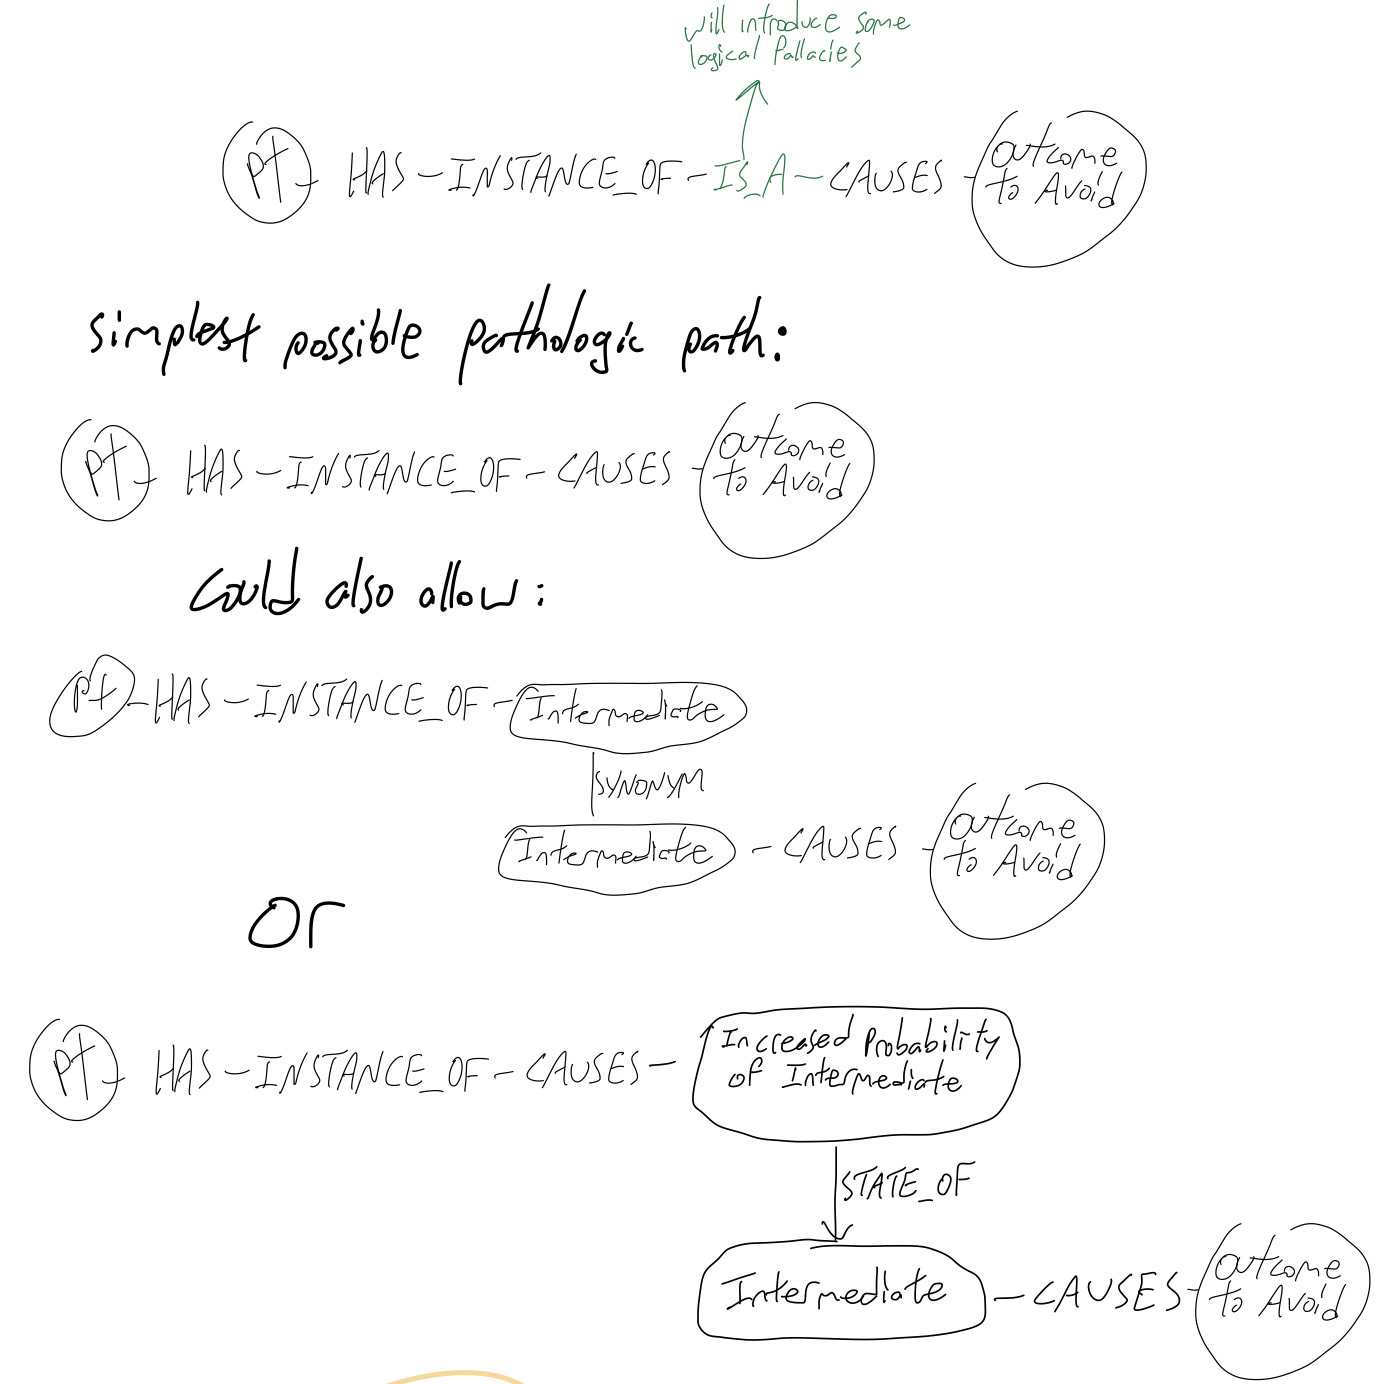 will introduce some
logical fallacies
pt HAS-INSTANCE_OF-IS_A-CAUSES outcome
to Avoid
simplest possible pathologic path:
pt HAS-INSTANCE_OF-CAUSES outcome
to Avoid
could also allow:
pt-HAS-INSTANCE_OF-Intermediate
SYNONYM
Intermediate - CAUSES outcome
to Avoid
or
pt HAS-INSTANCE_OF-CAUSES- Increased Probability
of Intermediate
STATE_OF
Intermediate -CAUSES- outcome
to Avoid